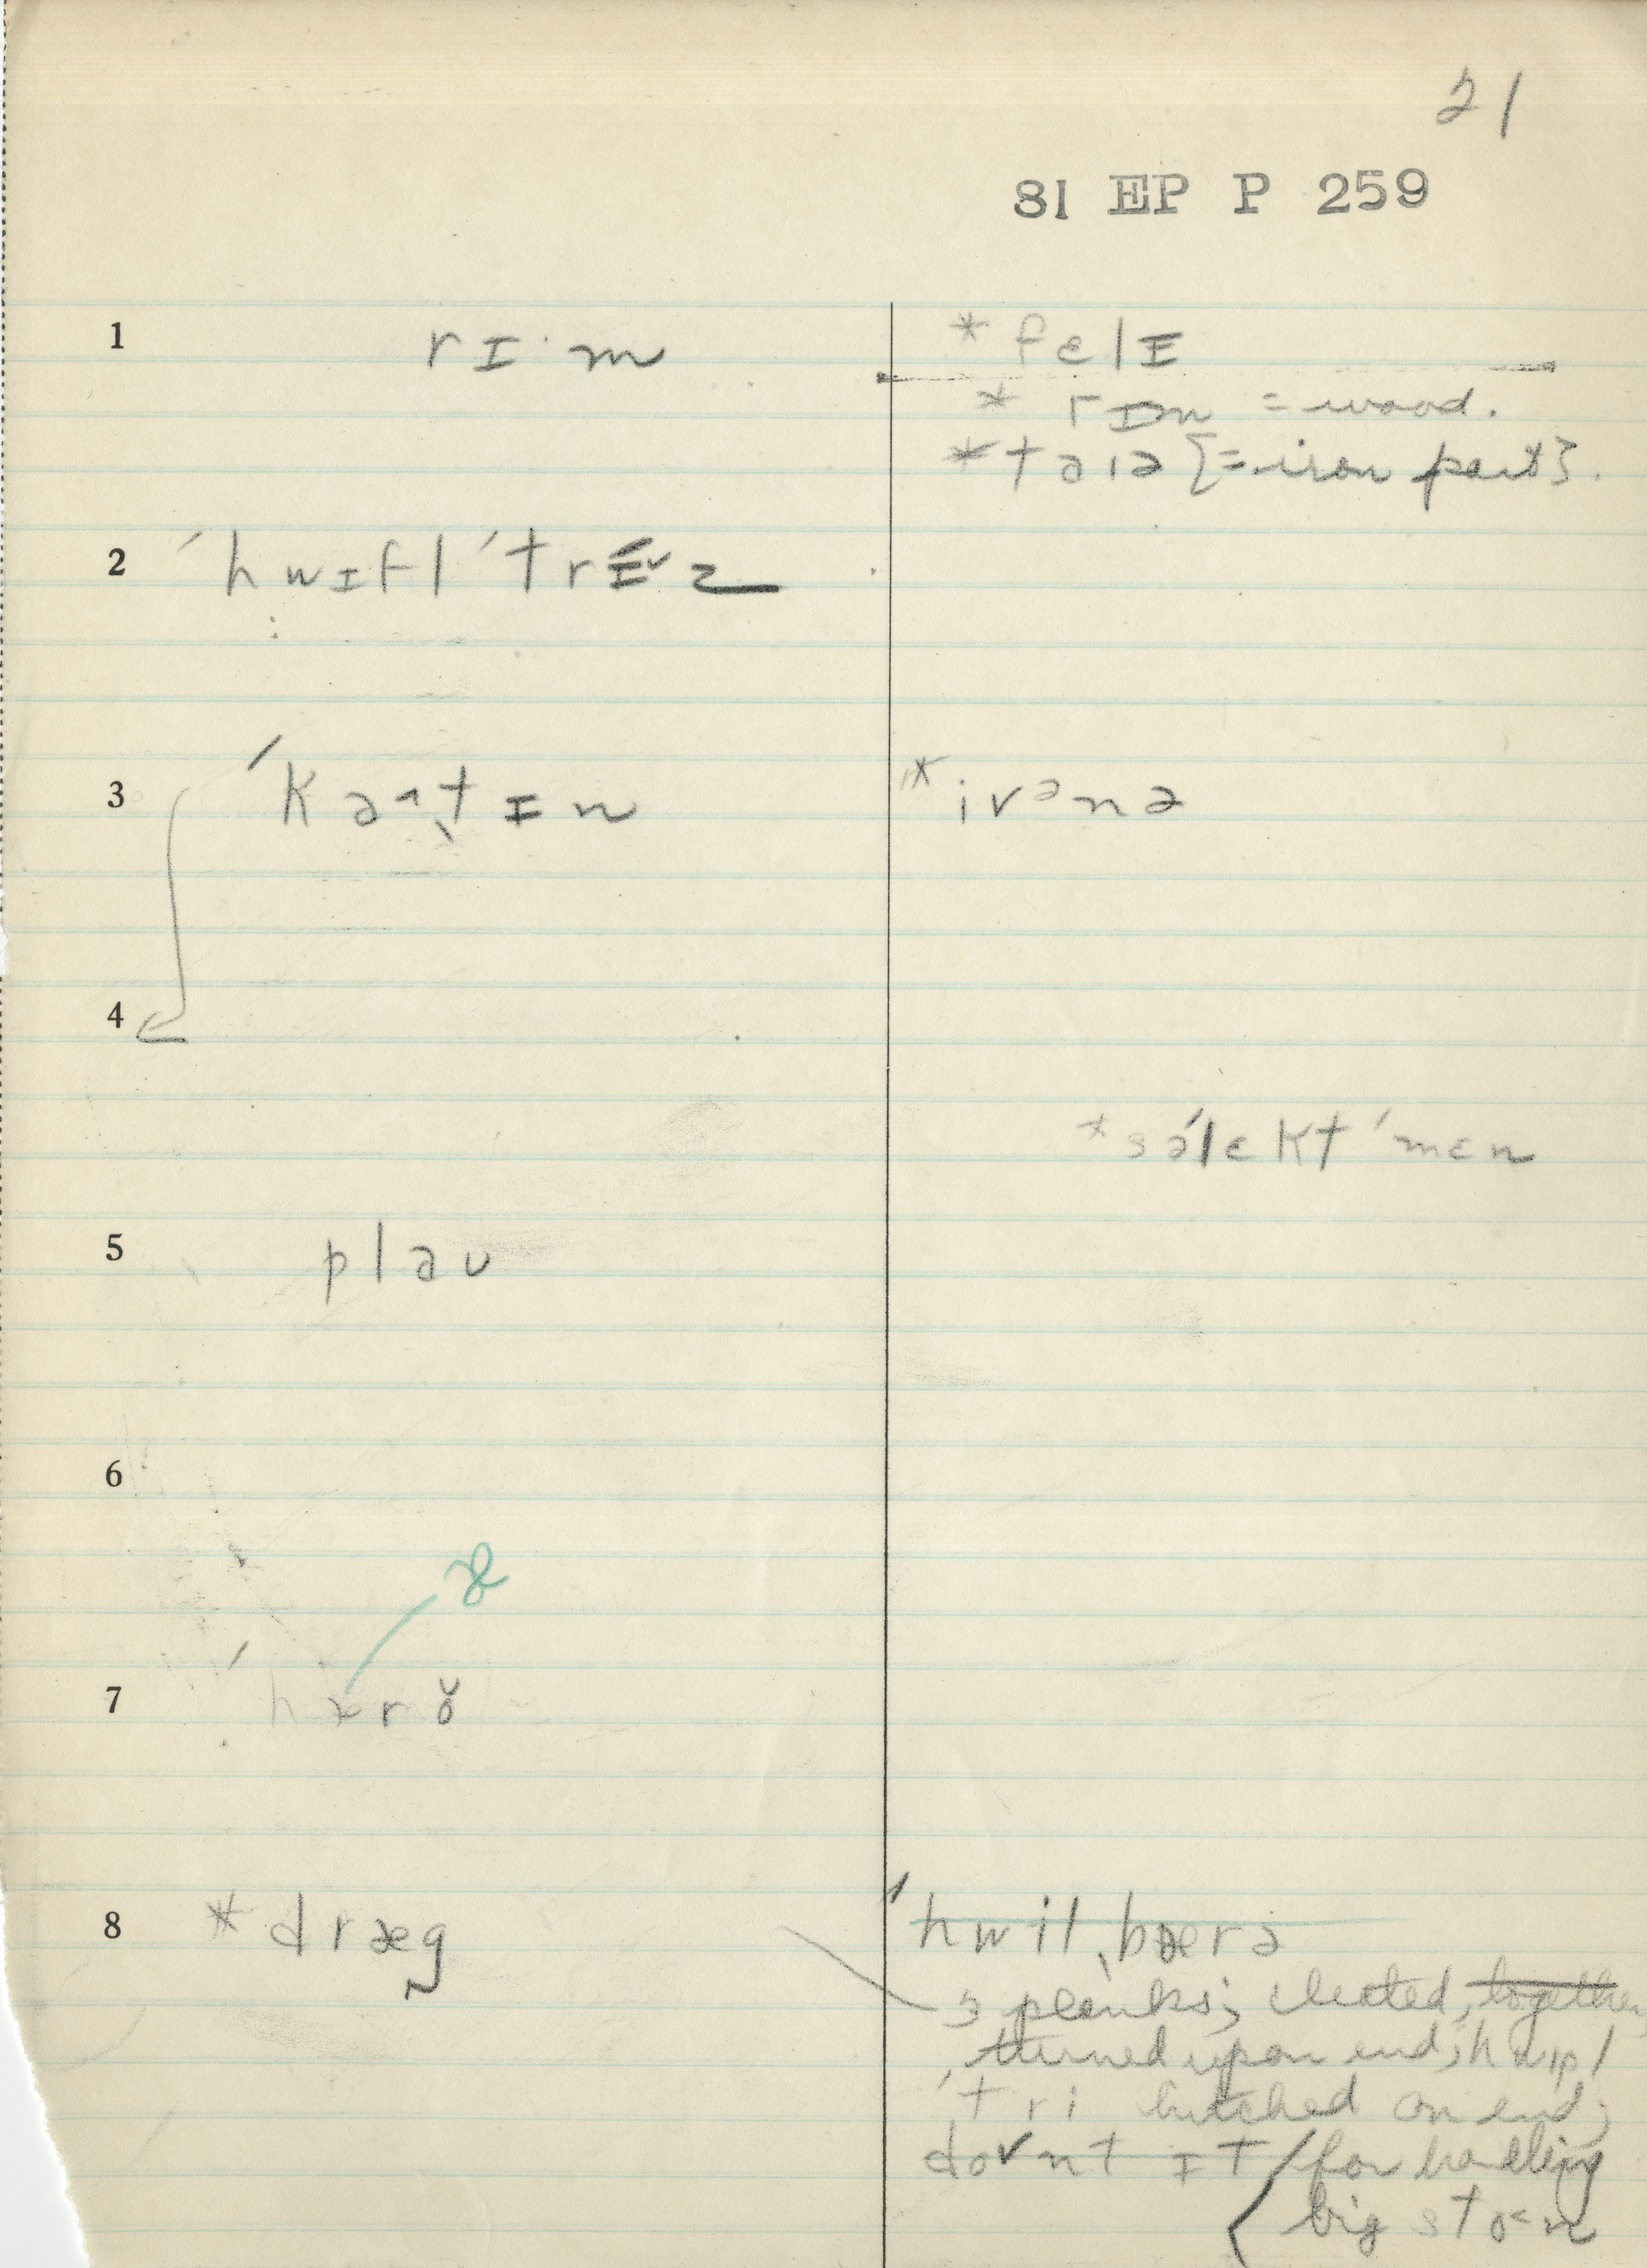 21
81 EP P 259
1 rɪ·m * fɛlɪ
* rɪm = wood.
* taɪə [= iron part].
2 ˈhwɪflˈtrɪˇz
3 ˈkaˑtɪn * ivᵊnə
4
* səˈlɛktˈmɛn
5 plaʊ
6
æ
7 ˈhærŏ
8 * dræg ˈhwilˌbærə
3 planks; cleated, together,
turned upon end; hwɪpl
ˈtri hitched on end;
doˇnt ɪt / for handling
big sto<n